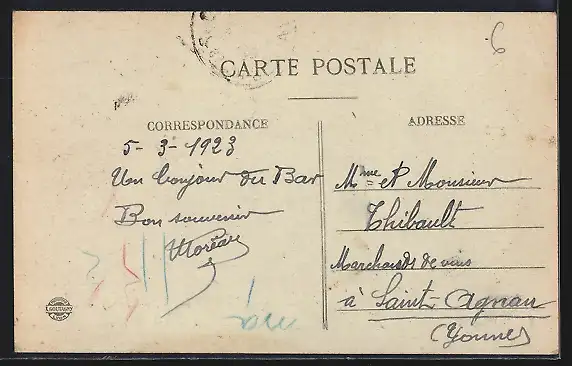 6
CARTE POSTALE
CORRESPONDANCE
ADRESSE
5-3-1923
Un bonjour du Bar
Bon souvenir
Moreau
Mme et Monsieur
Thibault
Marchands de vins
à Saint-Agnan
(Yonne)